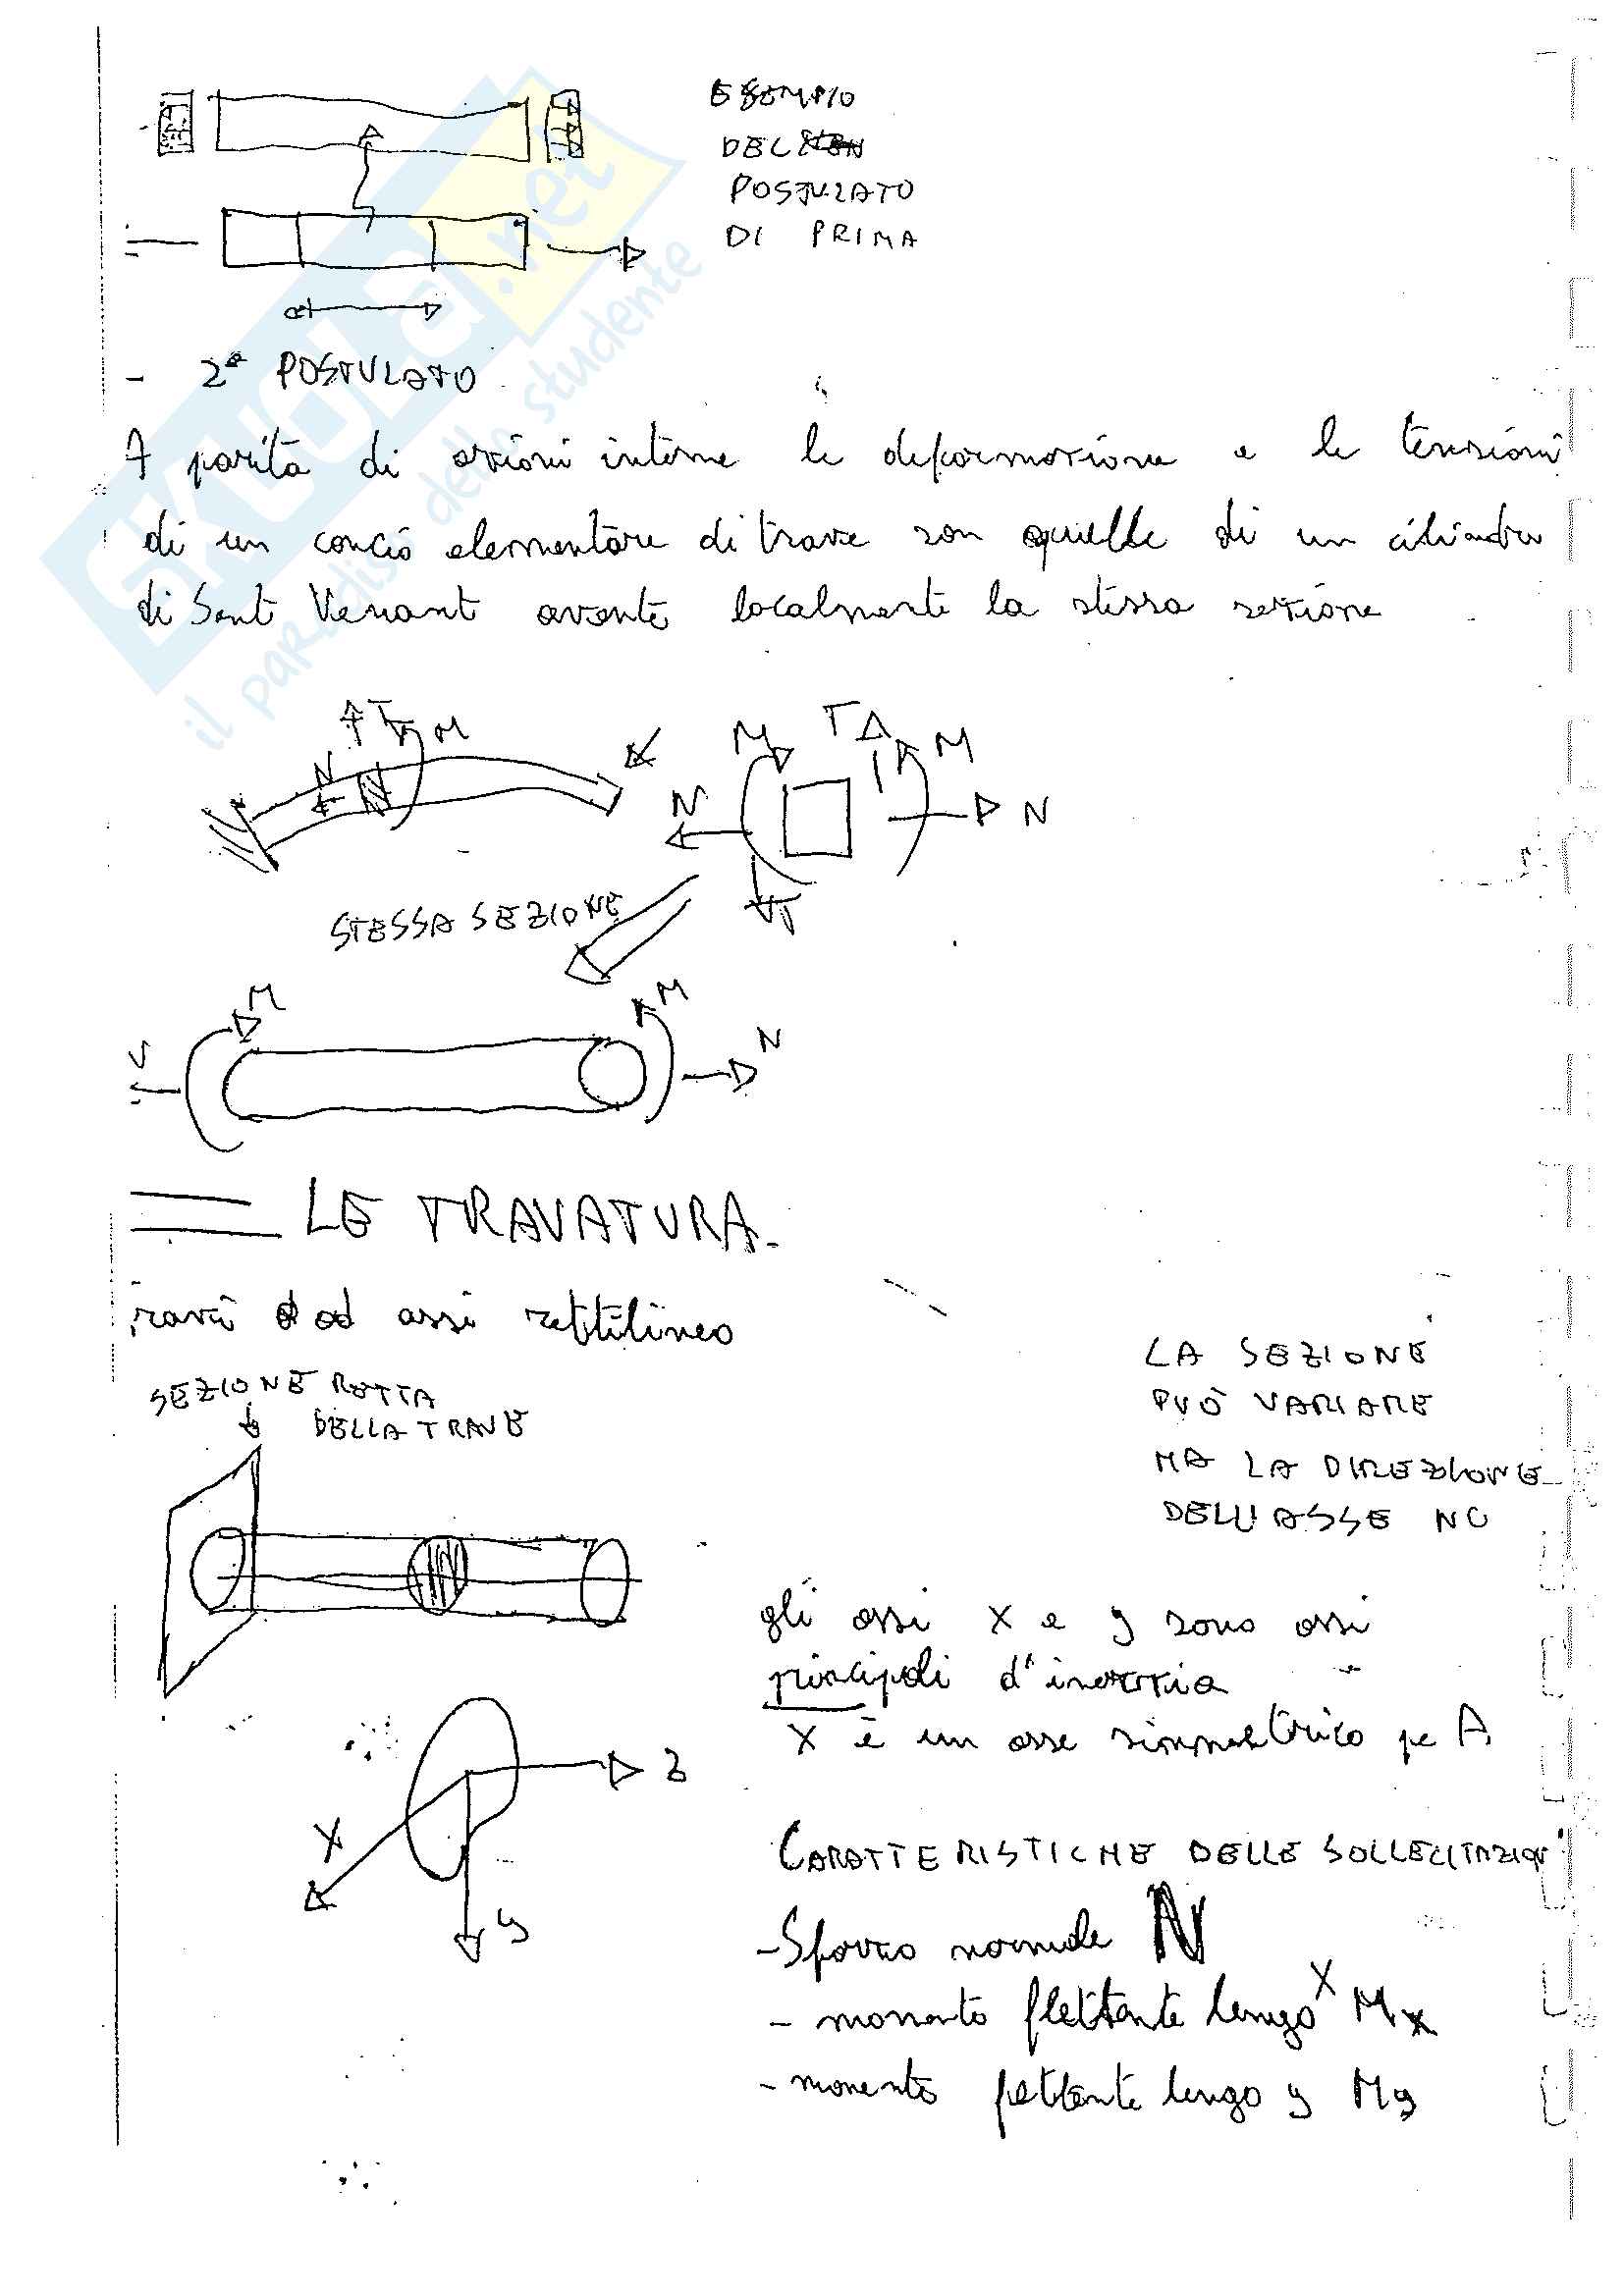 ESEMPIO
DEL
POSTULATO
DI PRIMA
- 2° POSTULATO
A parità di azioni interne le deformazione e le tensioni
di un concio elementare di trave son quelle di un cilindro
di Sent Venant avente localmente la stessa sezione
T M
N
M T M
N N
T
STESSA SEZIONE
M M
N
LE TRAVATURA
travi ad assi rettilineo
SEZIONE RETTA
DELLA TRAVE
LA SEZIONE
PUÒ VARIARE
MA LA DIREZIONE
DELL'ASSE NO
gli assi x e y sono assi
principali d'inerzia
x è un asse simmetrico pe A
z
x
y
CARATTERISTICHE DELLE SOLLECITAZIONI
- Sforzo normale N
- momento flettente lungo x Mx
- momento flettente lungo y My
skuola.net
il paradiso dello studente